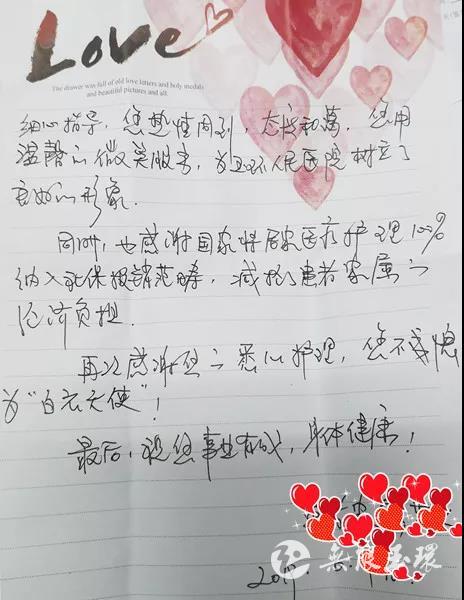 Love
The drawer was full of old love letters and holy medals
and beautiful pictures and all.
细心指导，您热情周到，态度和蔼，您用
温馨的微笑服务，为玉环人民医院树立了
良好的形象.
同时，也感谢国家将居家医疗护理100%
纳入社保报销范畴，减轻了患者家属的
经济负担.
再次感谢您的悉心护理，您不愧
为“白衣天使”！
最后，祝您事业有成，身体健康！
无限玉環